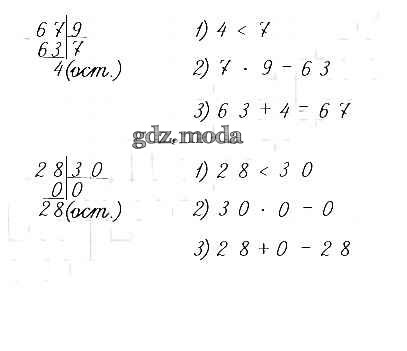 67|9 1) 4 < 7
63|7
4(ост.) 2) 7 · 9 = 63
3) 63 + 4 = 67
gdz.moda
28|30 1) 28 < 30
0|0
28(ост.) 2) 30 · 0 = 0
3) 28 + 0 = 28